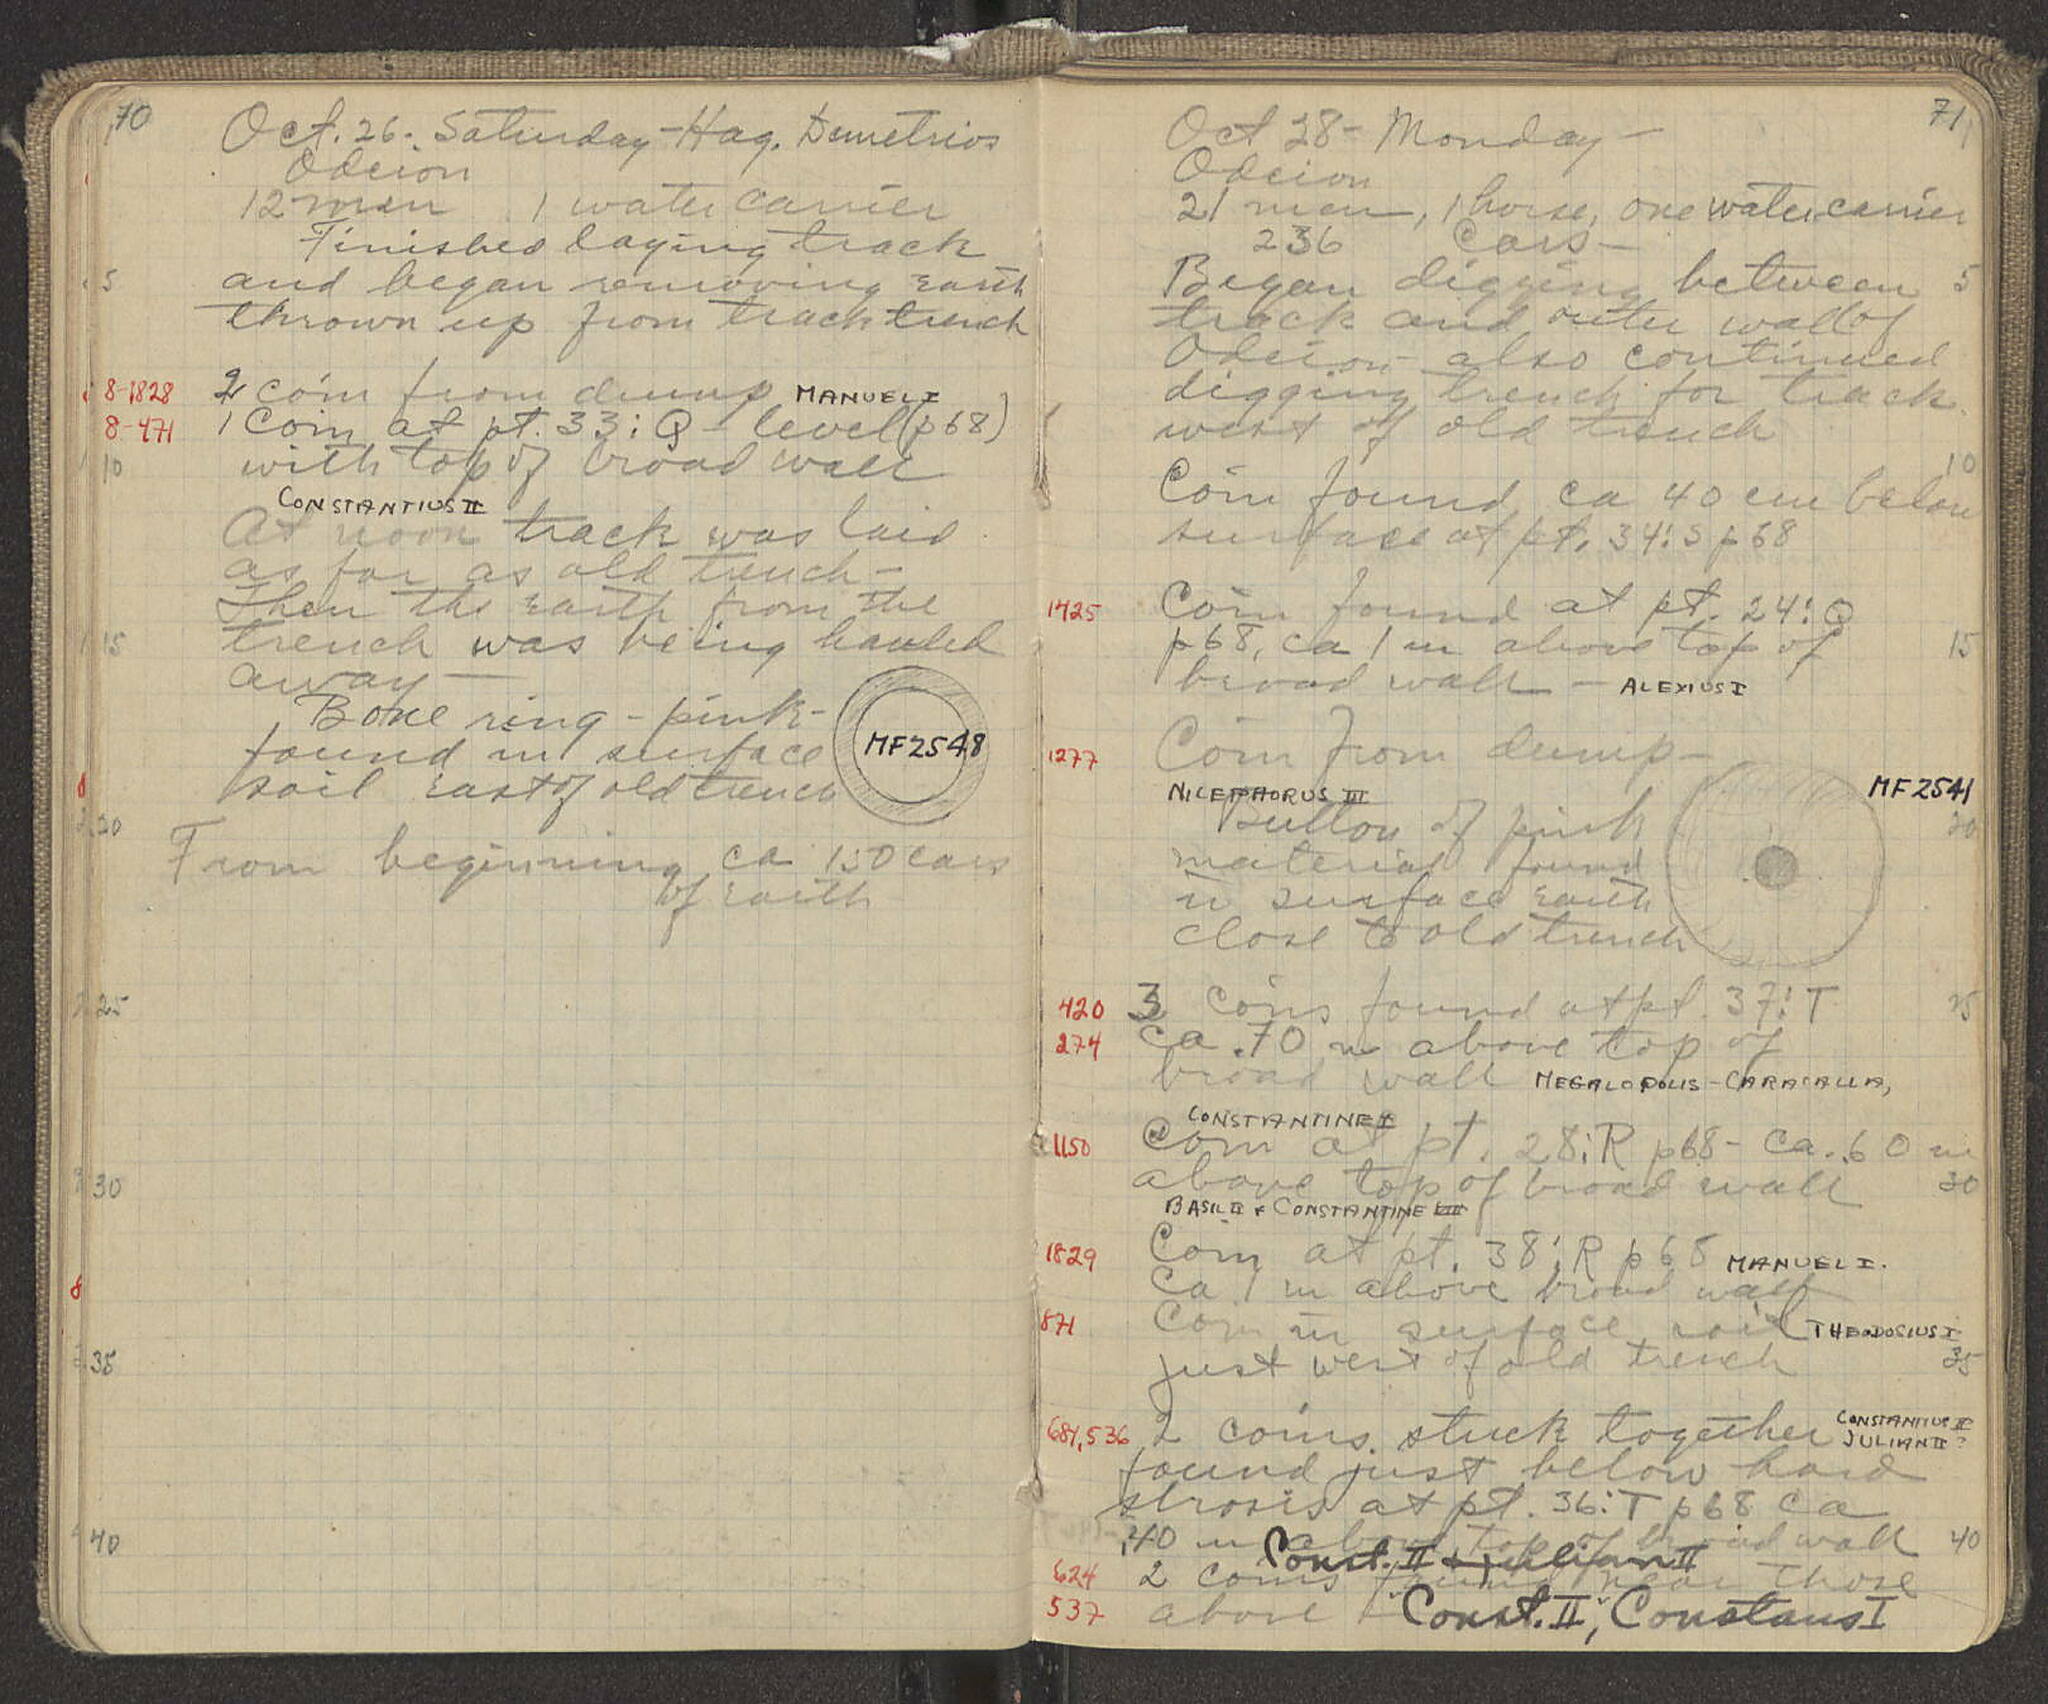 70
Oct. 26. Saturday - Hag. Demetrios
Odeion
12 men 1 water carrier
Finished laying track
5 and began removing earth
thrown up from track trench
8-1828 2 coin from dump MANUEL I
8-471 1 Coin at pt. 33:Q - level (p68)
10 with top of broad wall
CONSTANTIUS II
At noon track was laid
as far as old trench -
Then the earth from the
15 trench was being hauled
away -
Bone ring - pink -
found in surface
soil East of old trench
MF2548
20
From beginning ca 150 cars
of earth
25
30
35
40
71
Oct 28 - Monday -
Odeion
21 men, 1 horse, one water carrier
236 Cars -
Began digging between 5
track and outer wall of
Odeion - also continued
digging trench for track
west of old trench
10
Coin found ca 40 cm below
surface at pt. 34:S p68
1425 Coin found at pt. 24:Q
p68, ca 1 m above top of 15
broad wall - ALEXIUS I
1277 Coin from dump -
NICEPHORUS III
MF2541
Button of pink 20
material found
in surface earth
close to old trench
420 3 coins found at pt. 37:T 25
274 ca .70 m above top of
broad wall MEGALOPOLIS - CARACALLA,
CONSTANTINE I
1150 Coin at pt. 28:R p68 - ca .60 m
above top of broad wall 30
BASIL II + CONSTANTINE VIII
1829 Coin at pt. 38:R p68 MANUEL I.
ca 1 m above broad wall
871 Coin in surface soil THEODOSIUS I
just west of old trench 35
684,536 2 coins stuck together CONSTANTIUS II
JULIAN II ?
found just below hard
strosis at pt. 36:T p68 ca
.40 m above top of broad wall 40
Const. II + Julian II
624 2 coins found near those
537 above - Const. II, Constans I